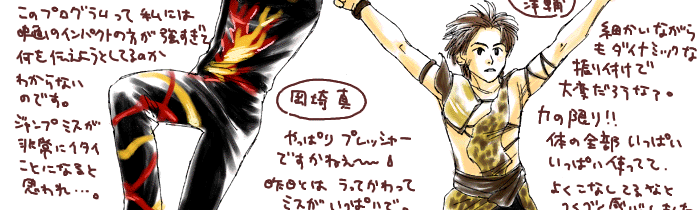 このプログラムって 私には
映画のインパクトの方が 強すぎて
何を伝えようとしてるのか
わからない
のです。
ジャンプミスが
非常にイタイ
ことになると
思われ…。
岡崎 真
やっぱり プレッシャー
ですかねぇ〜〜
昨日とは うってかわって
ミスが いっぱいで。
細かいながら
もダイナミックな
振り付けで
大変だろうなぁ。
力の限り!!
体の全部 いっぱい
いっぱい 使ってて、
よくこなしてるなと